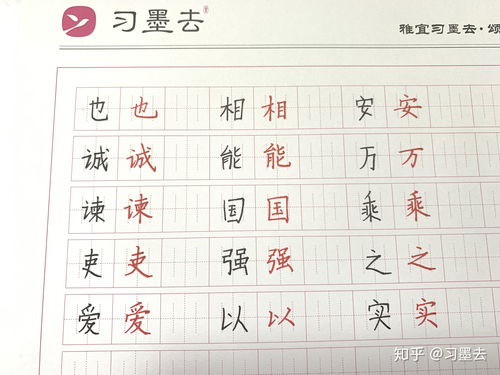 习墨去
雅宜习墨去·颂
也 也 相 相 安 安
诚 诚 能 能 万 万
谏 谏 国 国 乘 乘
吏 吏 强 强 之 之
爱 爱 以 以 实 实
知乎 @习墨去